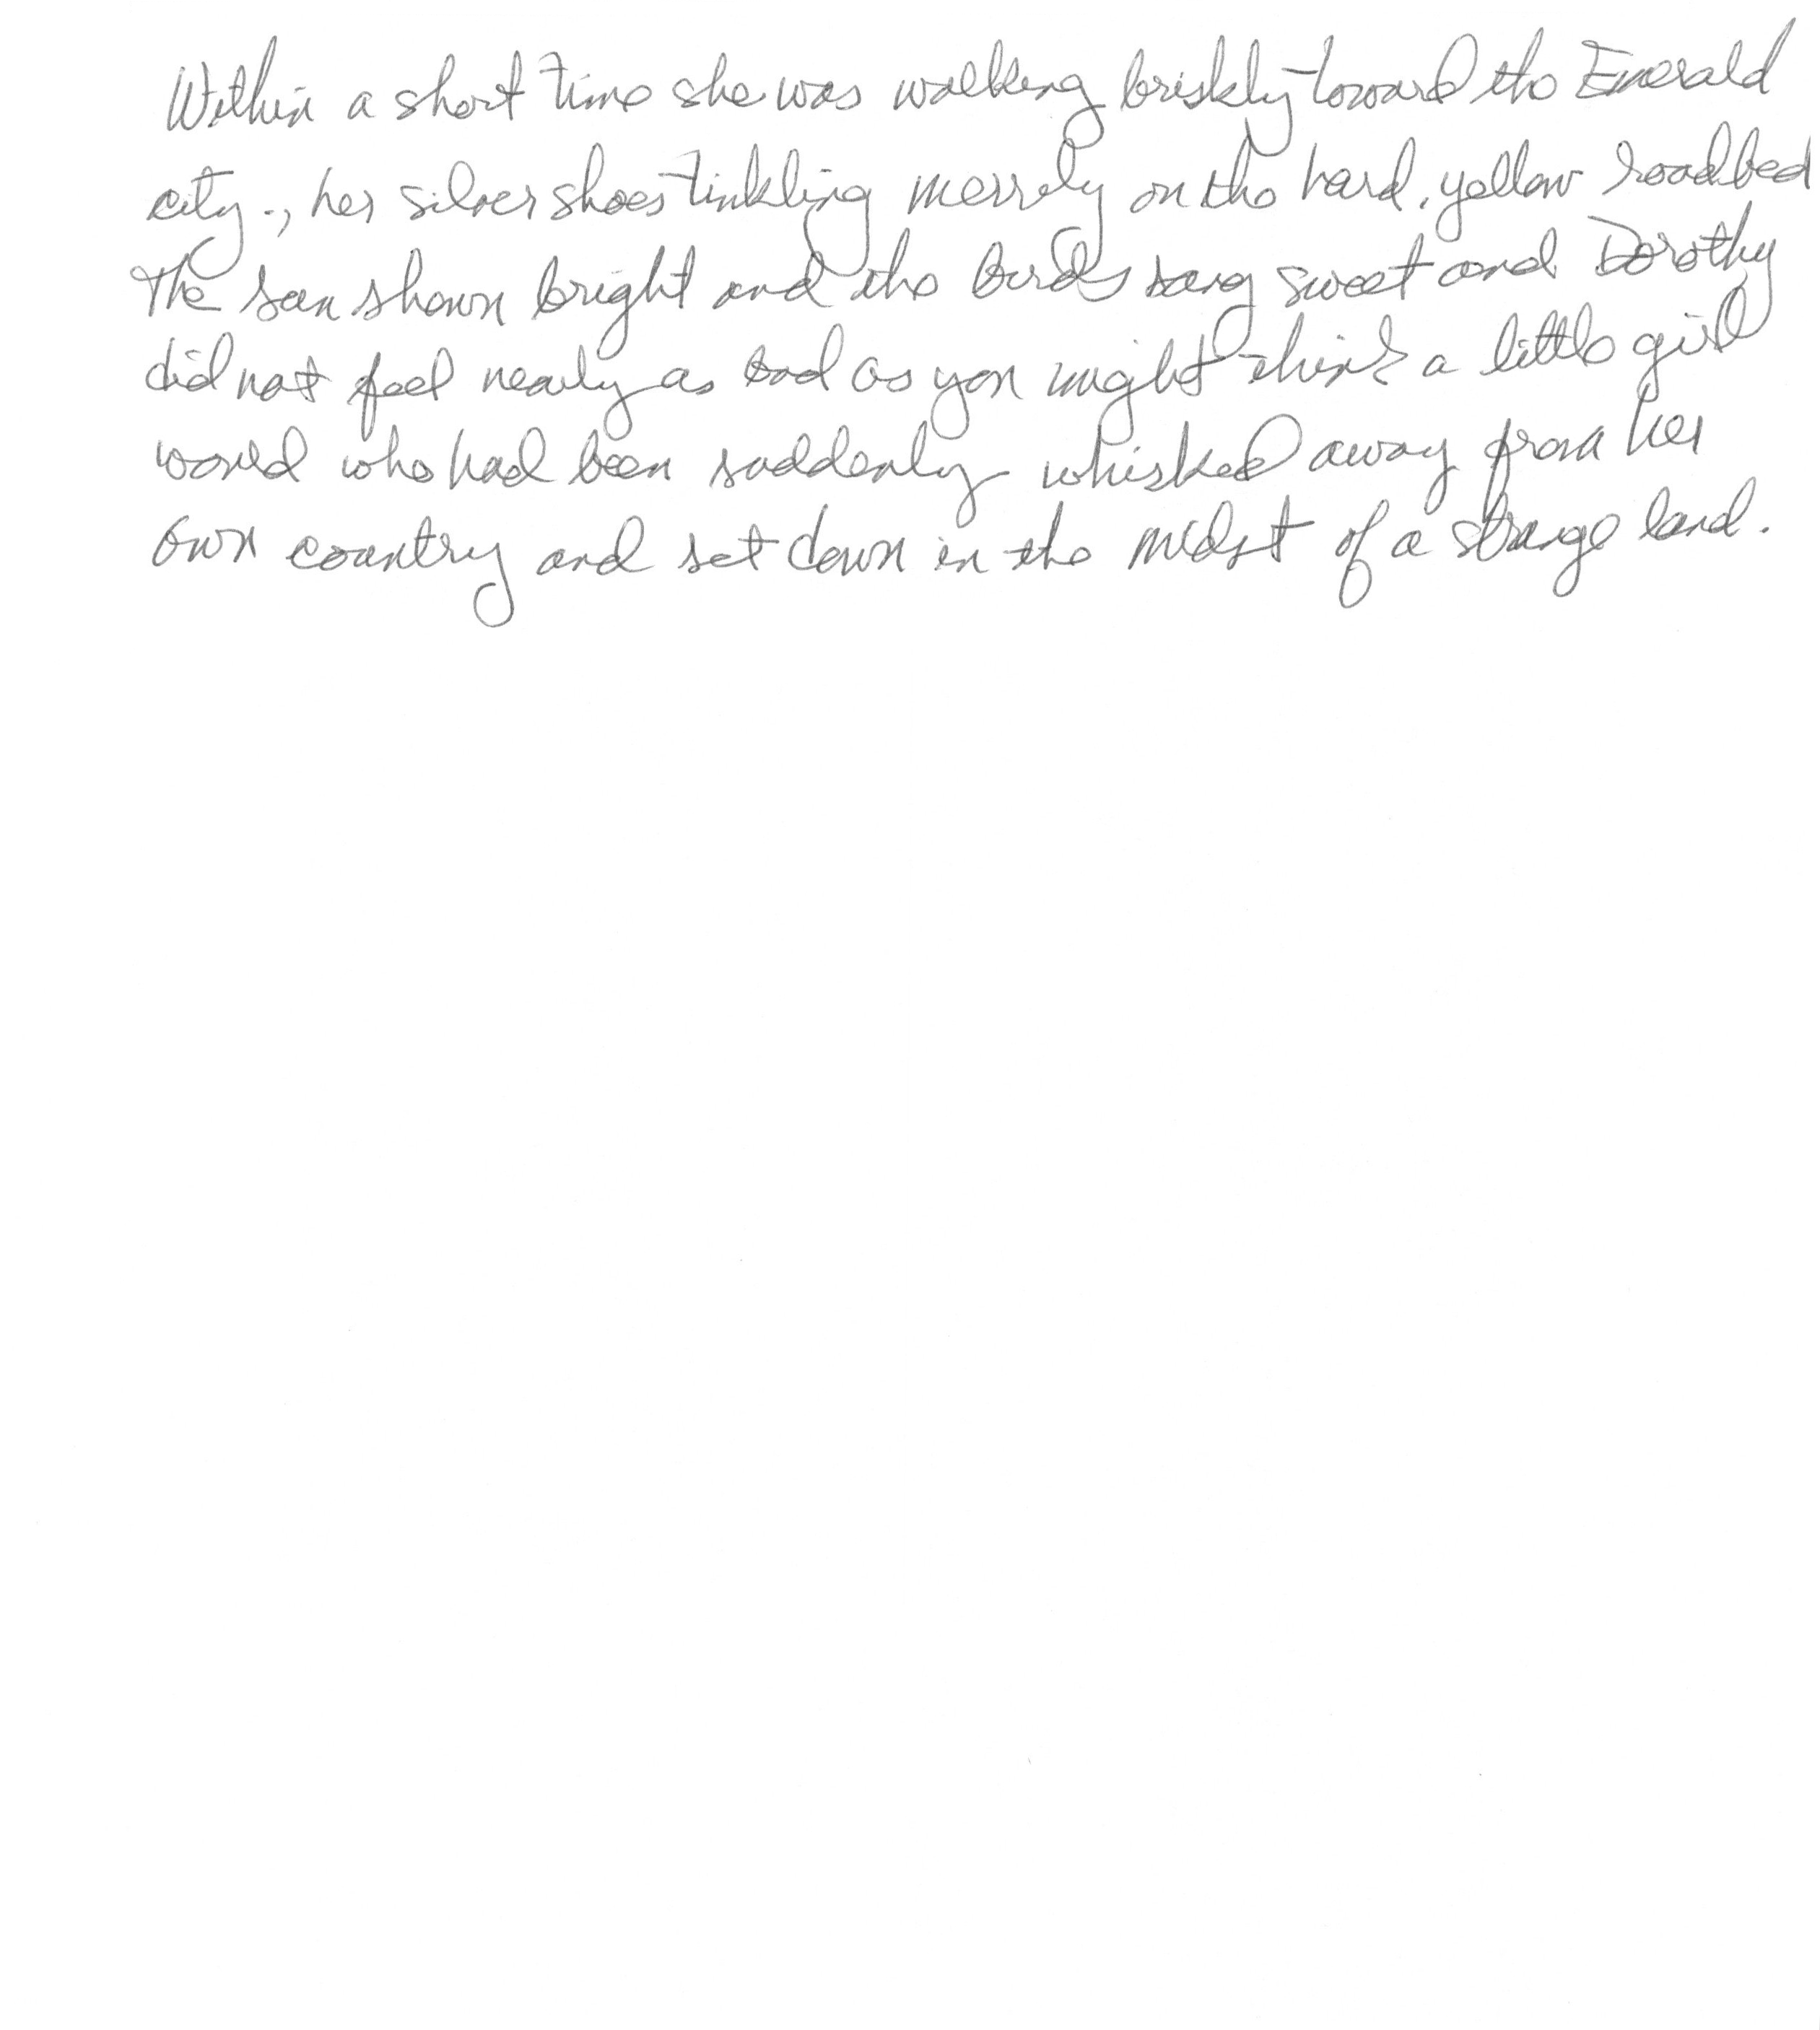 Within a short time she was walking briskly toward the Emerald
city., her silver shoes tinkling merrily on the hard, yellow roadbed
The sun shown bright and the birds sang sweet and Dorothy
did not feel nearly as bad as you might think a little girl
would who had been suddenly whisked away from her
own country and set down in the midst of a strange land.